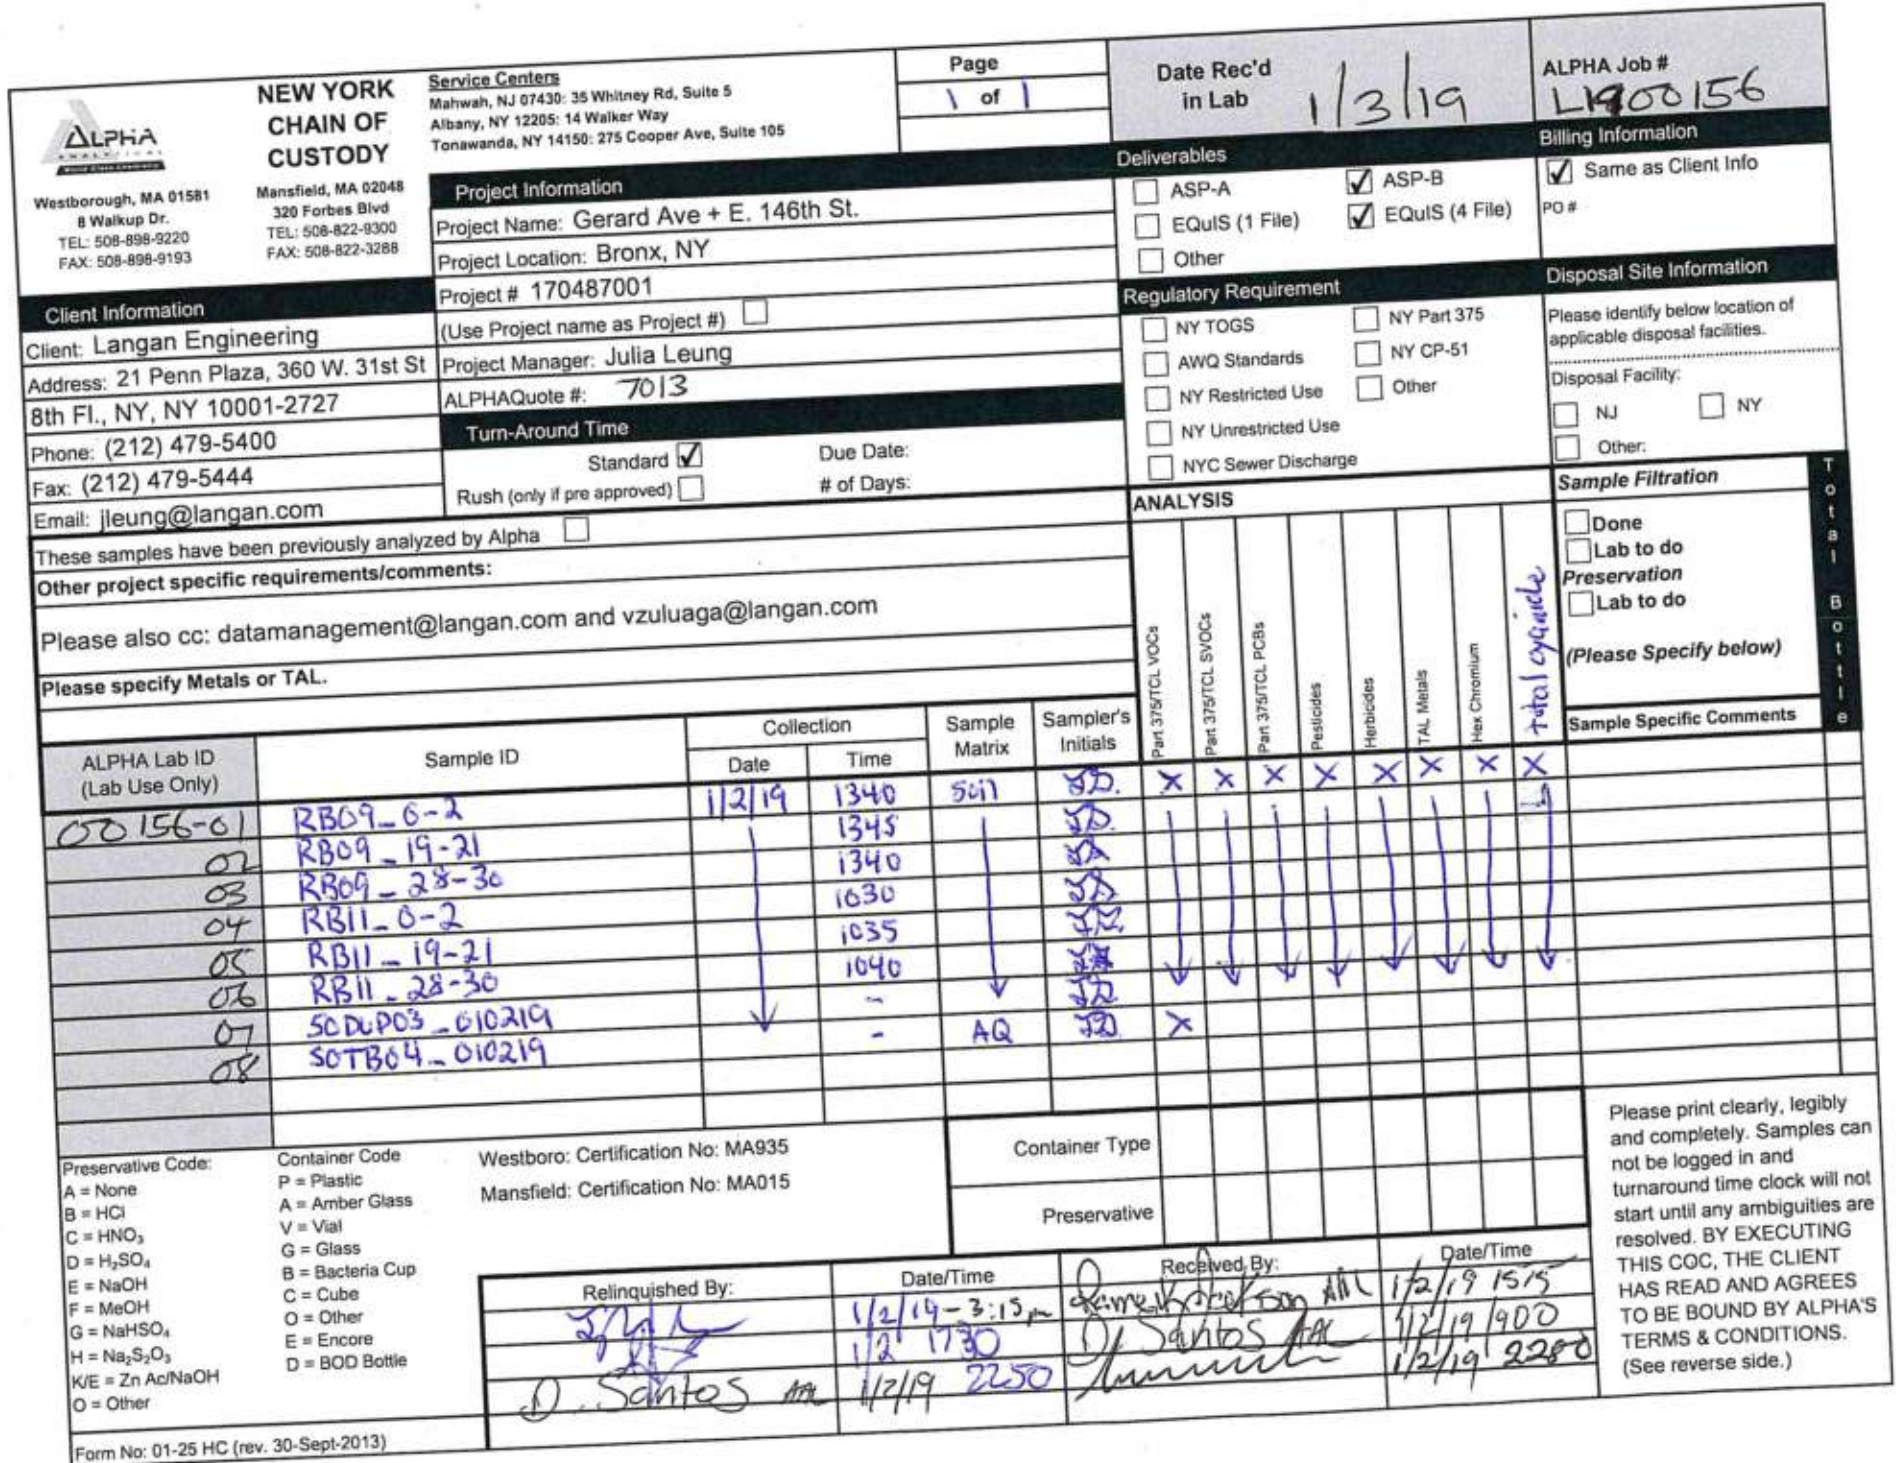 ALPHA
ANALYTICAL
Westborough, MA 01581
8 Walkup Dr.
TEL: 508-898-9220
FAX: 508-898-9193
NEW YORK
CHAIN OF
CUSTODY
Mansfield, MA 02048
320 Forbes Blvd
TEL: 508-822-9300
FAX: 508-822-3288
Service Centers
Mahwah, NJ 07430: 35 Whitney Rd, Suite 5
Albany, NY 12205: 14 Walker Way
Tonawanda, NY 14150: 275 Cooper Ave, Suite 105
Page
1 of 1
Date Rec'd
in Lab 1/3/19
ALPHA Job #
L1900156
Project Information
Project Name: Gerard Ave + E. 146th St.
Project Location: Bronx, NY
Project # 170487001
(Use Project name as Project #)
Project Manager: Julia Leung
ALPHAQuote #: 7013
Deliverables
ASP-A
ASP-B
EQuIS (1 File)
EQuIS (4 File)
Other
Billing Information
Same as Client Info
PO #
Client Information
Client: Langan Engineering
Address: 21 Penn Plaza, 360 W. 31st St
8th Fl., NY, NY 10001-2727
Phone: (212) 479-5400
Fax: (212) 479-5444
Email: jleung@langan.com
Turn-Around Time
Standard
Due Date:
Rush (only if pre approved)
# of Days:
Regulatory Requirement
NY TOGS
NY Part 375
AWQ Standards
NY CP-51
NY Restricted Use
Other
NY Unrestricted Use
NYC Sewer Discharge
Disposal Site Information
Please identify below location of
applicable disposal facilities.
Disposal Facility:
NJ
NY
Other:
These samples have been previously analyzed by Alpha
Other project specific requirements/comments:
Please also cc: datamanagement@langan.com and vzuluaga@langan.com
Please specify Metals or TAL.
ANALYSIS
Part 375/TCL VOCs
Part 375/TCL SVOCs
Part 375/TCL PCBs
Pesticides
Herbicides
TAL Metals
Hex Chromium
total cyanide
Sample Filtration
Done
Lab to do
Preservation
Lab to do
(Please Specify below)
Total Bottle
ALPHA Lab ID
(Lab Use Only)
Sample ID
Collection
Date
Time
Sample
Matrix
Sampler's
Initials
Sample Specific Comments
00156-01 RB09_0-2 1/2/19 1340 Soil X X X X X X X X
02 RB09_19-21 1345
03 RB09_28-30 1340
04 RB11_0-2 1030
05 RB11_19-21 1035
06 RB11_28-30 1040
07 SODUP03_010219 -
08 SOTB04_010219 - AQ X
Preservative Code:
A = None
B = HCl
C = HNO₃
D = H₂SO₄
E = NaOH
F = MeOH
G = NaHSO₄
H = Na₂S₂O₃
K/E = Zn Ac/NaOH
O = Other
Container Code
P = Plastic
A = Amber Glass
V = Vial
G = Glass
B = Bacteria Cup
C = Cube
O = Other
E = Encore
D = BOD Bottle
Westboro: Certification No: MA935
Mansfield: Certification No: MA015
Container Type
Preservative
Relinquished By:
Date/Time
Received By:
Date/Time
1/2/19 - 3:15pm 1/2/19 1515
1/2 1730 D. Santos AAL 1/2/19 1900
D. Santos AAL 1/2/19 2250 1/2/19
Please print clearly, legibly
and completely. Samples can
not be logged in and
turnaround time clock will not
start until any ambiguities are
resolved. BY EXECUTING
THIS COC, THE CLIENT
HAS READ AND AGREES
TO BE BOUND BY ALPHA'S
TERMS & CONDITIONS.
(See reverse side.)
Form No: 01-25 HC (rev. 30-Sept-2013)